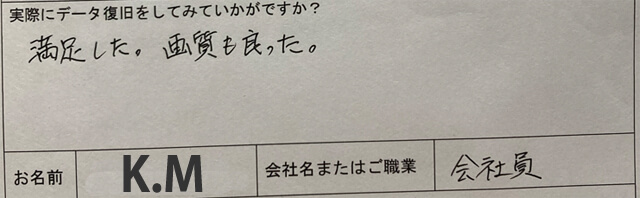 実際にデータ復旧をしてみていかがですか?
満足した。画質も良った。
お名前 K.M 会社名またはご職業 会社員